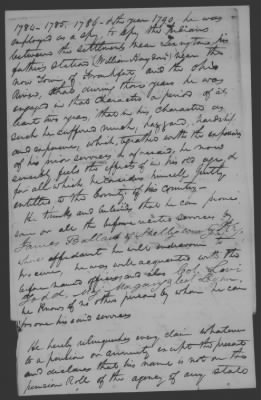 1784 - 1785, 1786 - & the year 1790, he was
employed as a spy, to spy the Indians
between the settlements near Lexington, his
fathers Station (William Haydons) near the
now Town of Frankfort, and the Ohio
River, that during those years he was
engaged in that character a period of at
least two years, that in his character as
such he suffered much, hazzard, hardship
and exposure, which, together with the exposure
of his prior services, he now
sensibly feels the effects of in his old age, &
for all which he considers himself justly
entitled to the bounty of his Country -
He thinks and believes that he can prove
some or all the before services by
James Ballard of Shelby County Ky.
whose affidavit he will endeavour to
procure, he was well acquainted with the
before named officers and also Col. Levi
Todd,
he knows of no other persons by whom he can
prove his said services
He hereby relinquishes every claim whatever
to a pension or annuity except the present
and declares that his name is not on the
pension Roll of the agency of any state